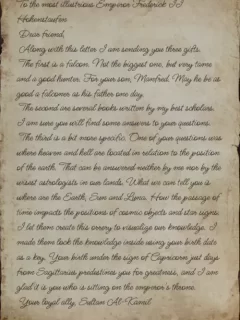 To the most illustrious Emperor Frederick II
Hohenstaufen
Dear friend,
Along with this letter I am sending you three gifts.
The first is a falcon. Not the biggest one, but very tame
and a good hunter. For your son, Manfred. May he be as
good a falconer as his father one day.
The second are several books written by my best scholars.
I am sure you will find some answers to your questions.
The third is a bit more specific. One of your questions was
where heaven and hell are located in relation to the position
of the earth. That can be answered neither by me nor by the
wisest astrologists in our lands. What we can tell you is
where are the Earth, Sun and Luna. How the passage of
time impacts the positions of cosmic objects and star signs.
I let them create this orrery to visualize our knowledge. I
made them lock the knowledge inside using your birth date
as a key. Your birth under the sign of Capricorn just days
from Sagittarius predestines you for greatness, and I am
glad it is you who is sitting on the emperor's throne.
Your loyal ally, Sultan Al-Kamil